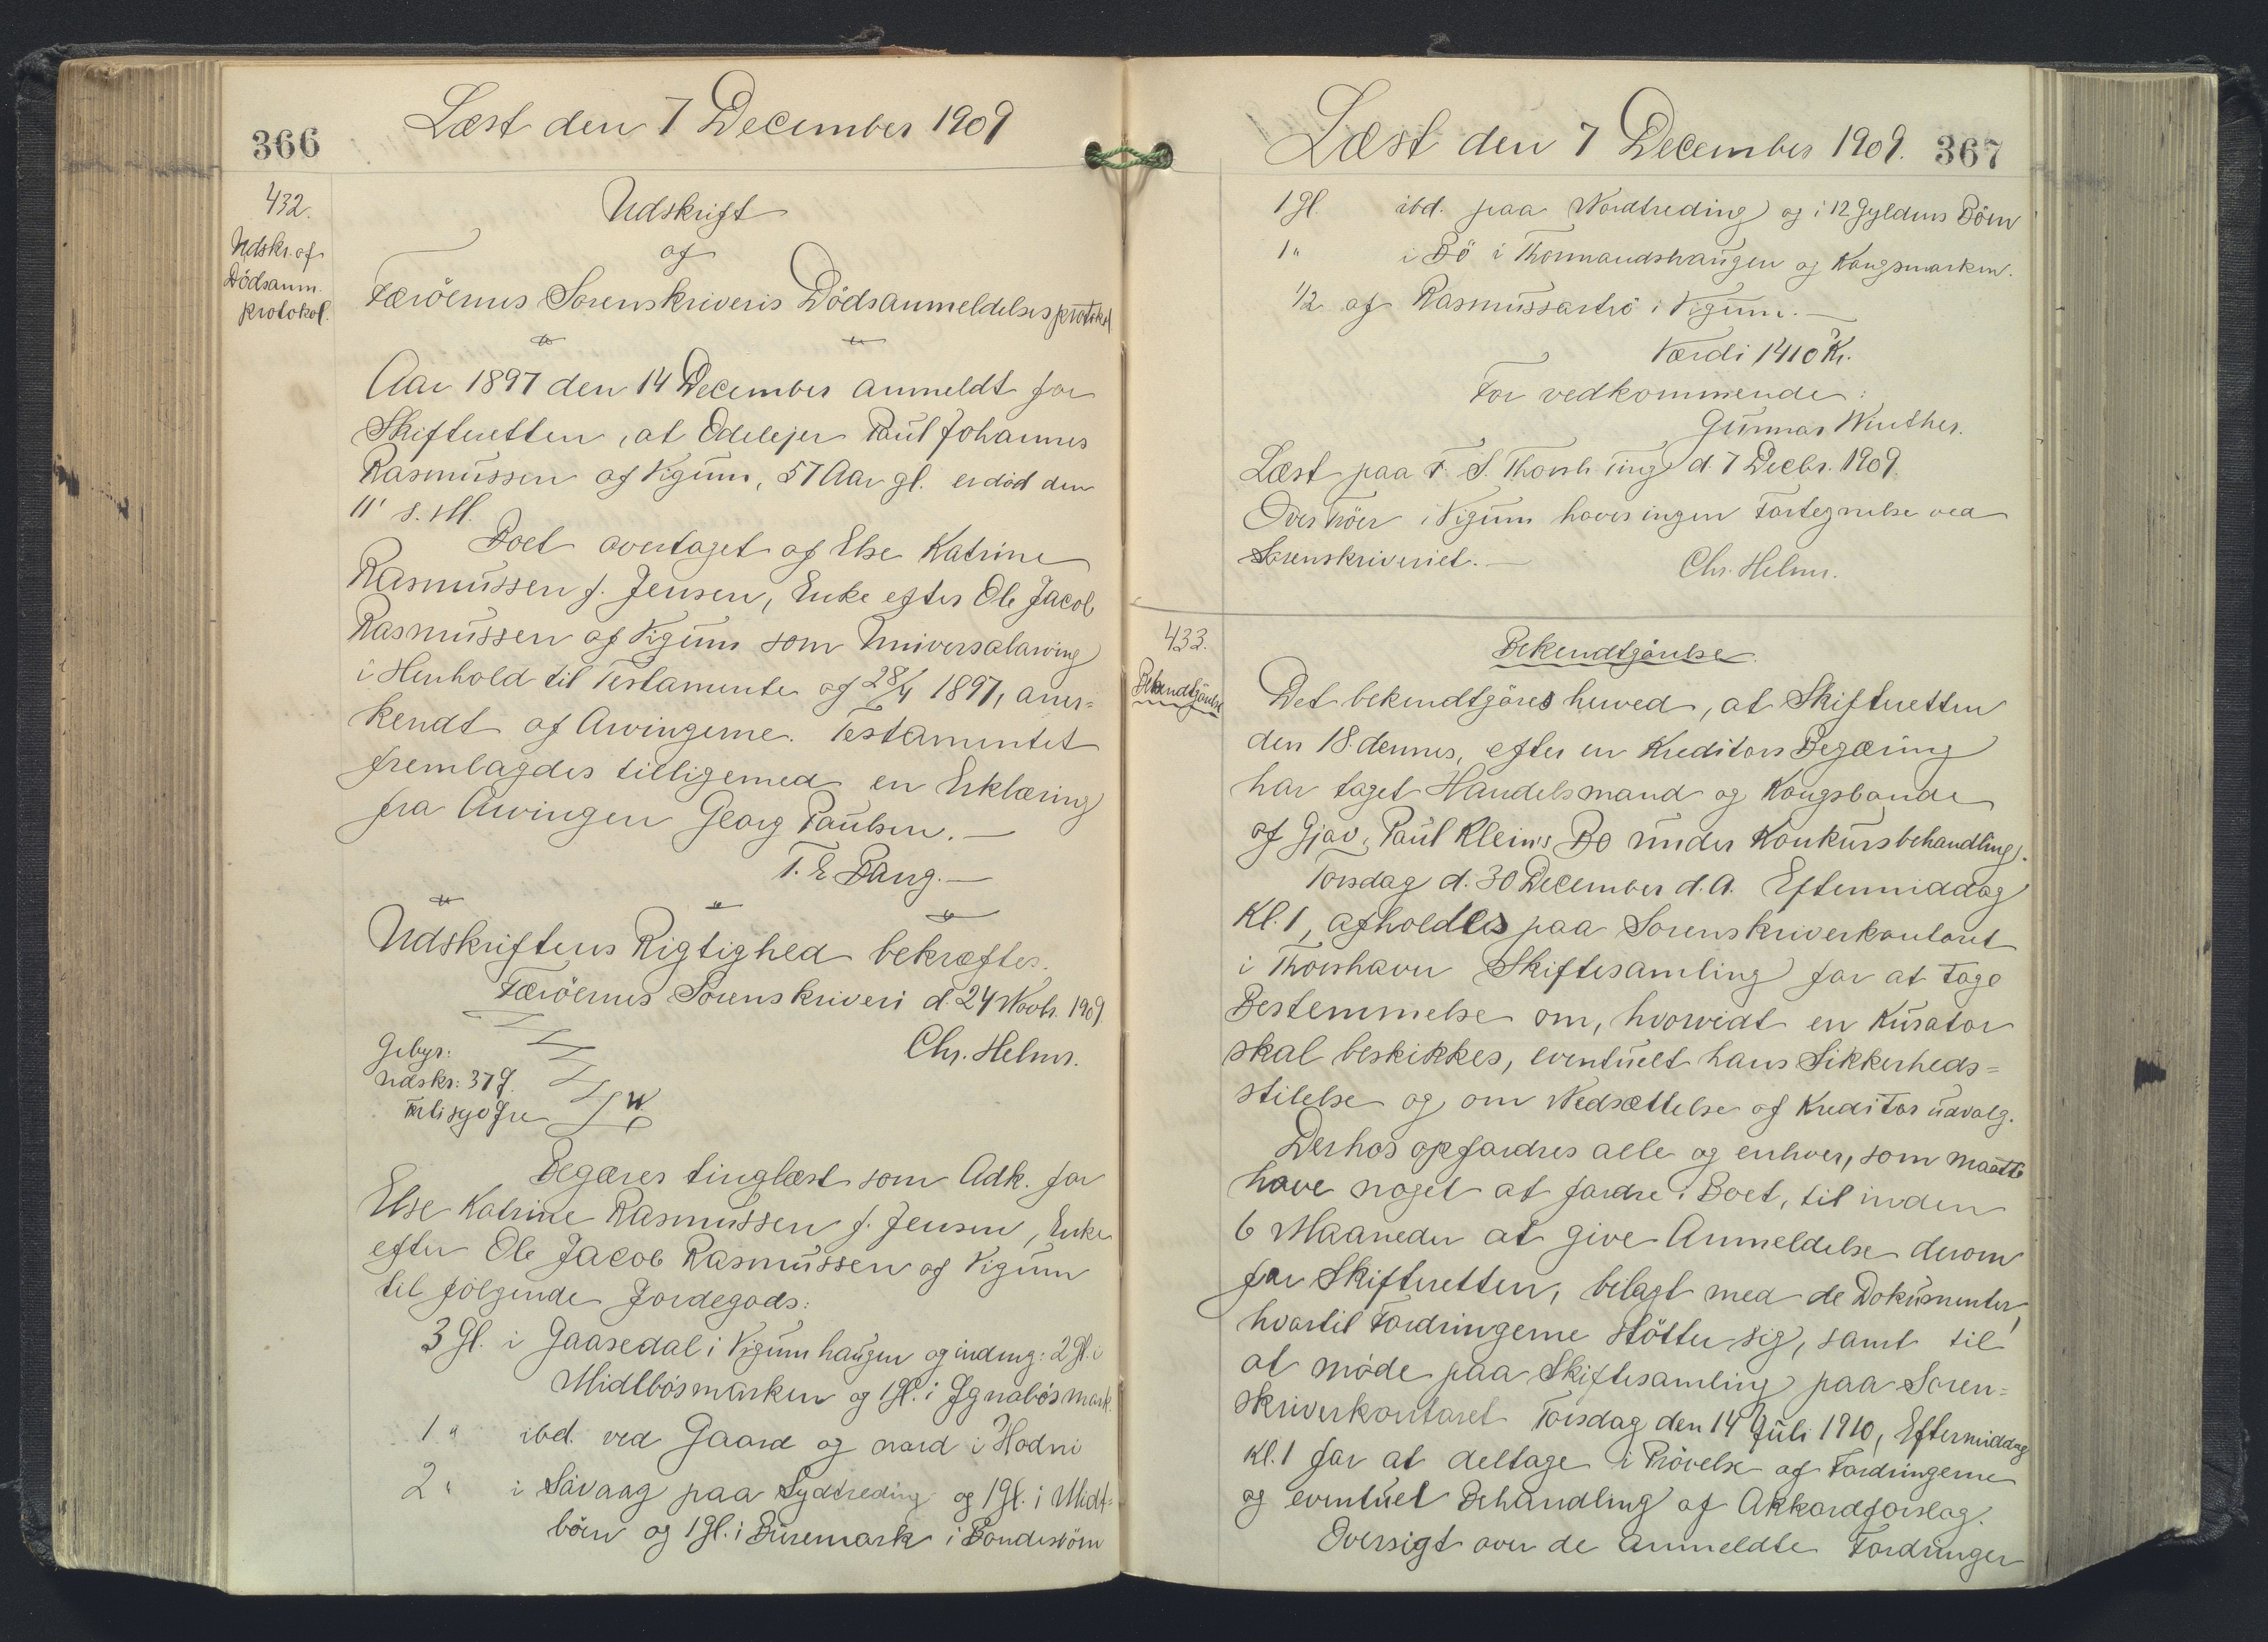 366
Læst den 7 December 1909
432.
Udskr. af
Dödsanm.
protokol.
Udskrift
af
Færöernes Sorenskriveris Dödsanmeldelsesprotokol
Aar 1897 den 14 December anmeldt for
Skifteretten, at Odelejer Paul Johannes
Rasmussen af Vigum, 57 Aar gl. er död den
11' s. M.
Boet overtaget af Else Katrine
Rasmussen f. Jensen, Enke efter Ole Jacob
Rasmussen af Vigum som Universalarving
i Henhold til Testamente af 28/4 1897, aner=
kendt af Arvingerne. Testamentet
fremlagdes tilligemed en Erklæring
fra Arvingen Georg Paulsen. —
T. E Bang. —
Udskriftens Rigtighed bekræftes.
Færöernes Sorenskriveri d. 24 Novbr. 1909
Chr. Helms.
Gebyr:
Udskr: 37
Begæres tinglæst som Adk. for
Else Katrine Rasmussen f. Jensen, Enke
efter Ole Jacob Rasmussen af Vigum
til følgende Jordegods:
3 Gl. i Gaasedal i Vigum haugen og indmg: 2 Gl. i
Midlbösmarken og 1 Gl. i Ignabösmark.
1 " ibd. ved Gaard og nord i Hodni
2 " i Sàvaag paa Sydtreding og 1 Gl. i Midt=
böen og 1 Gl. i Büremark i Bondesböen
Læst den 7 December 1909. 367
1 Gl. ibd. paa Nordtreding og i 12 Gyldens Böen
1 " i Bö i Thormandshaugen og Kongsmarken.
1/2 af Rasmussartrö i Vigum. —
Værdi 1410 Kr.
For vedkommende:
Gunnar Winther.
Læst paa F. S. Thorsh. Ting d. 7 Decbr. 1909.
Over Tröer i Vigum haves ingen Fortegnelse ved
Sorenskriveriet. —
Chr. Helms.
433.
Bekendtgörelse
Bekendtgörelse.
Det bekendtgöres herved, at Skifteretten
den 18. dennes, efter en Kreditors Begæring
har taget Handelsmand og Kongsbonde
af Gjov, Paul Kleins Bo under Konkursbehandling.
Torsdag d. 30 December d. A. Eftermiddag
Kl. 1, afholdes paa Sorenskriverkontoret
i Thorshavn Skiftesamling for at tage
Bestemmelse om, hvorvidt en Kurator
skal beskikkes, eventuelt hans Sikkerheds=
stilelse og om Nedsættelse af Kreditorudvalg.
Derhos opfordres alle og enhver, som maatte
have noget at fordre i Boet, til inden
6 Maaneder at give Anmeldelse derom
for Skifteretten, bilagt med de Dokumenter,
hvortil Fordringerne stötter sig, samt til
at möde paa Skiftesamling paa Soren=
skriverkontoret Torsdag den 14 Juli 1910, Eftermiddag
Kl. 1 for at deltage i Prövelse af Fordringerne
og eventuel Behandling af Akkordforslag.
Oversigt over de anmeldte Fordringer